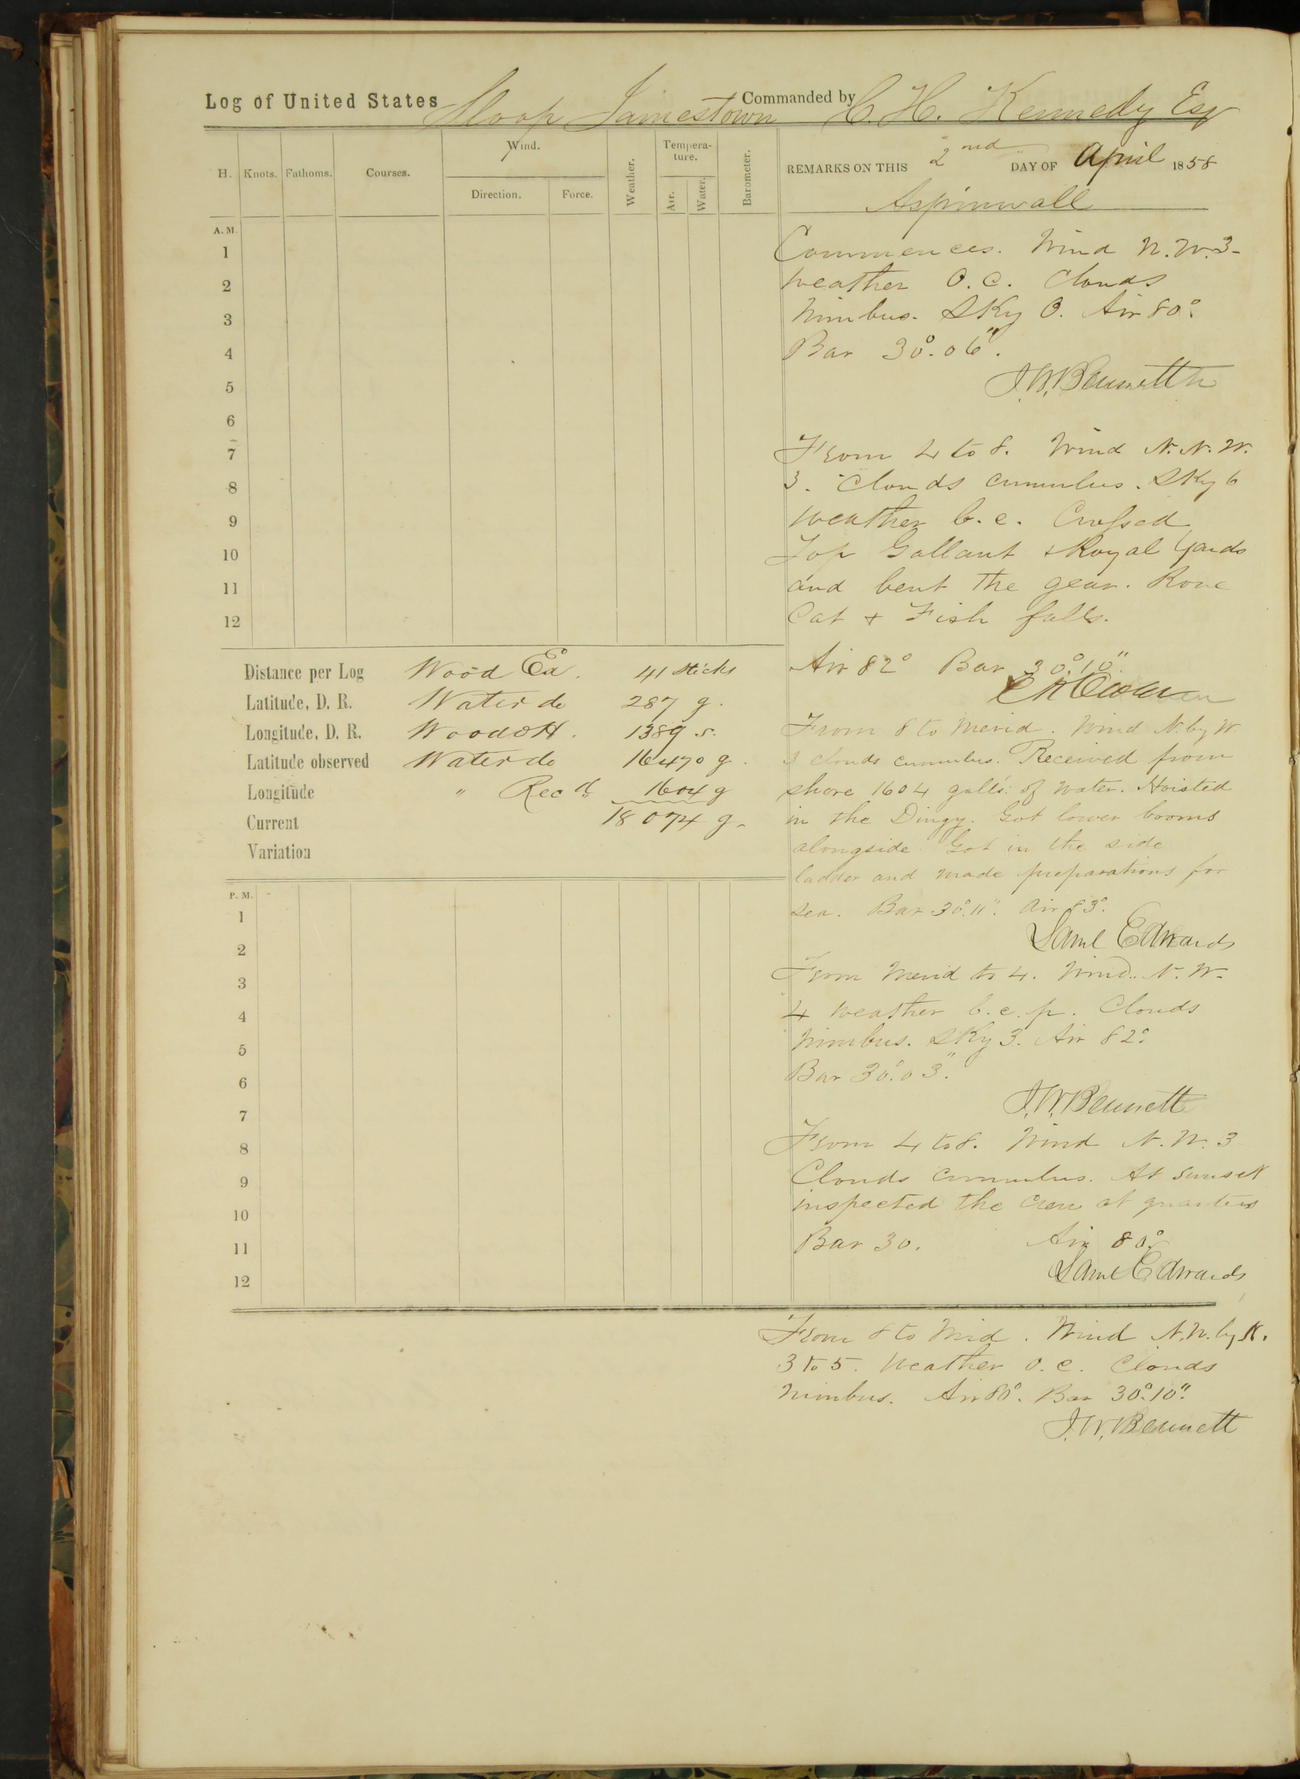 Log of United States Sloop Jamestown Commanded by C. H. Kennedy Esq
H. Knots. Fathoms. Courses. Wind. Direction. Force. Weather. Tempera-ture. Air. Water. Barometer.
REMARKS ON THIS 2nd DAY OF April 1858
Aspinwall
A. M.
1
2
3
4
5
6
7
8
9
10
11
12
Commences. Wind N.W. 3-
weather O. C. Clouds
Nimbus. Sky O. Air 80°.
Bar 30°.06".
J.W. Bennett
From 4 to 8. Wind N.N.W.
3. Clouds cumulus. Sky 6
Weather b. c. Crossed
Top Gallant & Royal Yards
and bent the gear. Rove
Cat & Fish falls.
Air 82° Bar 30°.10".
Distance per Log Wood Ex. 41 sticks
Latitude, D. R. Water do 287 g.
Longitude, D. R. Wood OH. 1389 s.
Latitude observed Water do 16470 g.
Longitude " Recd 1604 g
Current 18074 g.
Variation
From 8 to Merid. Wind N. by W
3 clouds cumulus. Received from
shore 1604 galls. of water. Hoisted
in the Dingy. Got lower booms
alongside. Got in the side
ladder and made preparations for
sea. Bar 30°.11". Air 83°.
Saml Edwards
P. M.
1
2
3
4
5
6
7
8
9
10
11
12
From Merid to 4. Wind. N. W.
4 weather b. c. p. Clouds
Nimbus. Sky 3. Air 82°.
Bar 30°.03".
J.W. Bennett
From 4 to 8. Wind N. W. 3
Clouds cumulus. At sunset
inspected the crew at quarters
Bar 30. Air 80°.
Saml Edwards
From 8 to Mid. Wind N.W. by N.
3 to 5. Weather O. C. Clouds
Nimbus. Air 80°. Bar 30°.10".
J.W. Bennett